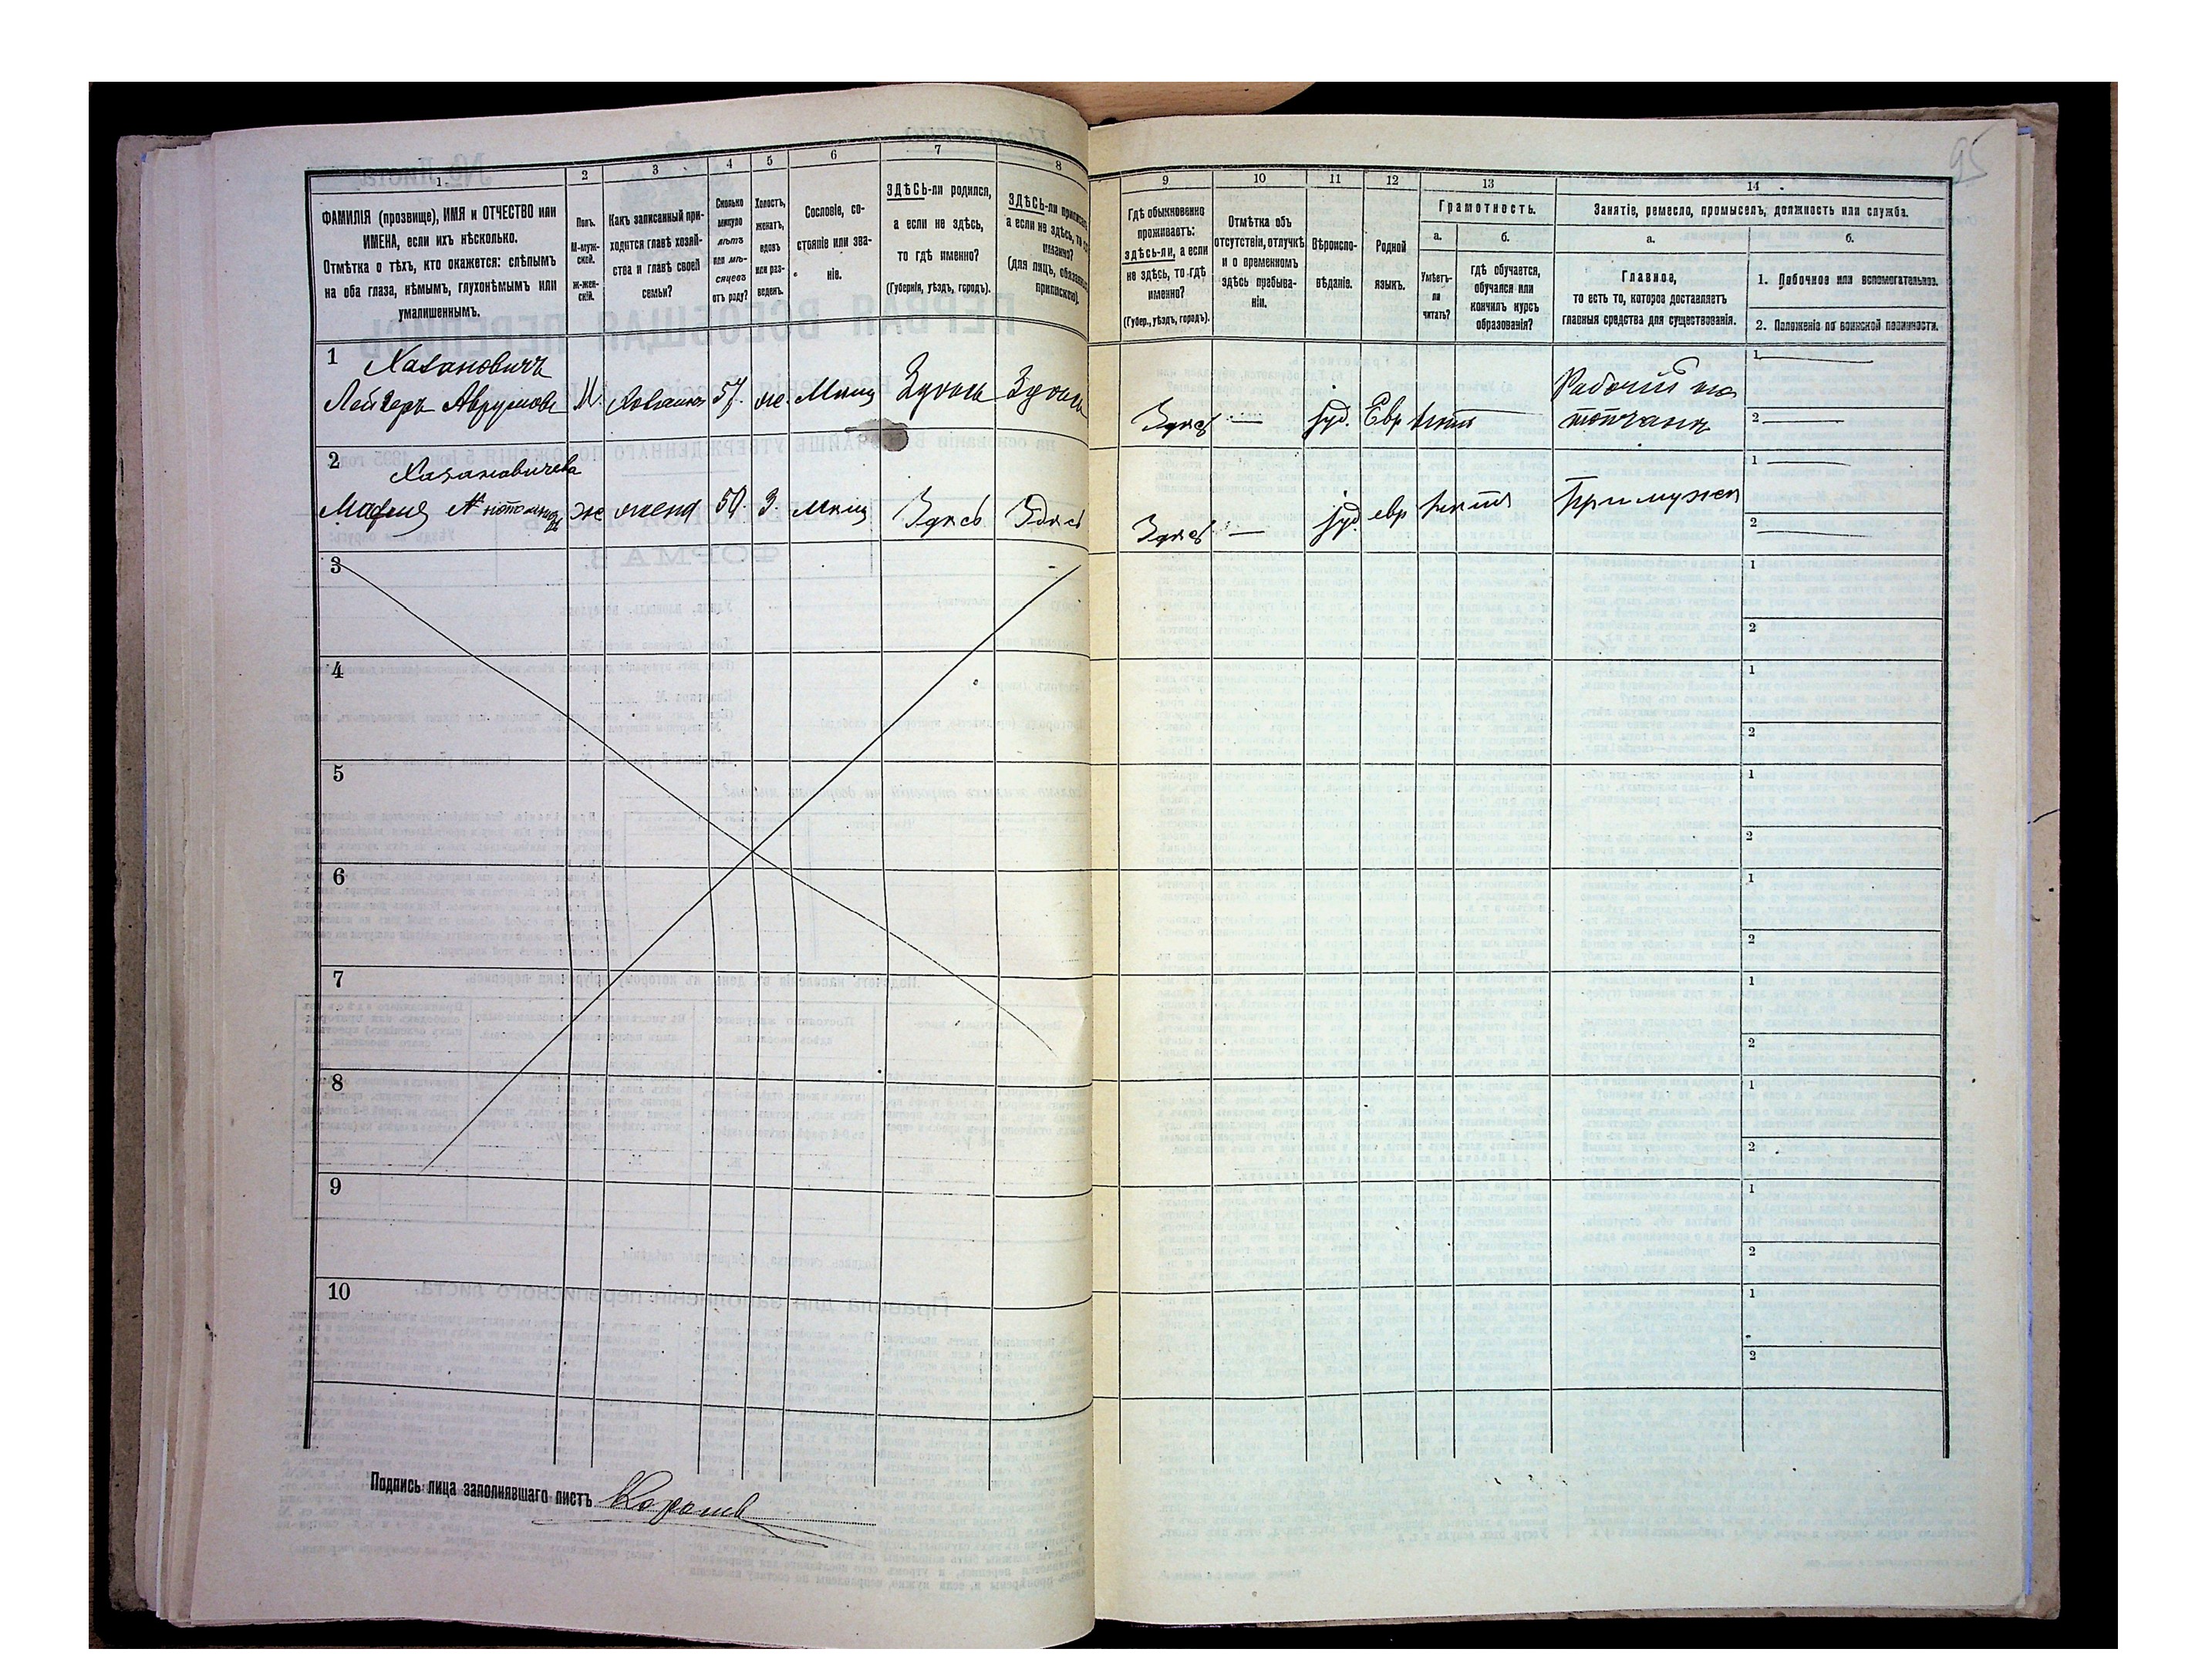 95
1.
2
3
4
5
6
7
8
ФАМИЛІЯ (прозвище), ИМЯ и ОТЧЕСТВО или
ИМЕНА, если ихъ нѣсколько.
Отмѣтка о тѣхъ, кто окажется: слѣпымъ
на оба глаза, нѣмымъ, глухонѣмымъ или
умалишеннымъ.
Полъ.
М-муж-
ской.
Ж-жен-
скій.
Какъ записанный при-
ходится главѣ хозяй-
ства и главѣ своей
семьи?
Сколько
минуло
лѣтъ
или мѣ-
сяцевъ
отъ роду?
Холостъ,
женатъ,
вдовъ
или раз-
веденъ.
Сословіе, со-
стояніе или зва-
ніе.
ЗДѢСЬ-ли родился,
а если не здѣсь,
то гдѣ именно?
(Губернія, уѣздъ, городъ).
ЗДѢСЬ-ли приписанъ,
а если не здѣсь, то гдѣ
именно?
(для лицъ, обязанныхъ
припискою).
9
10
11
12
13
14
Гдѣ обыкновенно
проживаетъ:
здѣсь-ли, а если
не здѣсь, то гдѣ
именно?
(Губер., уѣздъ, городъ).
Отмѣтка объ
отсутствіи, отлучкѣ
и о временномъ
здѣсь пребыва-
ніи.
Вѣроиспо-
вѣданіе.
Родной
языкъ.
Грамотность.
а.
б.
Умѣетъ-
ли
читать?
гдѣ обучается,
обучался или
кончилъ курсъ
образованія?
Занятіе, ремесло, промыселъ, должность или служба.
а.
б.
Главное,
то есть то, которое доставляетъ
главныя средства для существованія.
1. Побочное или вспомогательное.
2. Положеніе по воинской повинности.
1 Хазановичъ
Лейзеръ Аврумовъ М. 57. же. Мѣщ Здѣсь Здѣсь
Здѣсь — іуд. Евр нѣтъ Рабочій
1 —
2 —
2 Хазановичева
ж жена 50. З. Мѣщ Здѣсь Здѣсь
Здѣсь — іуд. евр нѣтъ При мужѣ
1 —
2 —
3
1
2
4
1
2
5
1
2
6
1
2
7
1
2
8
1
2
9
1
2
10
1
2
Подпись лица заполнявшаго листъ